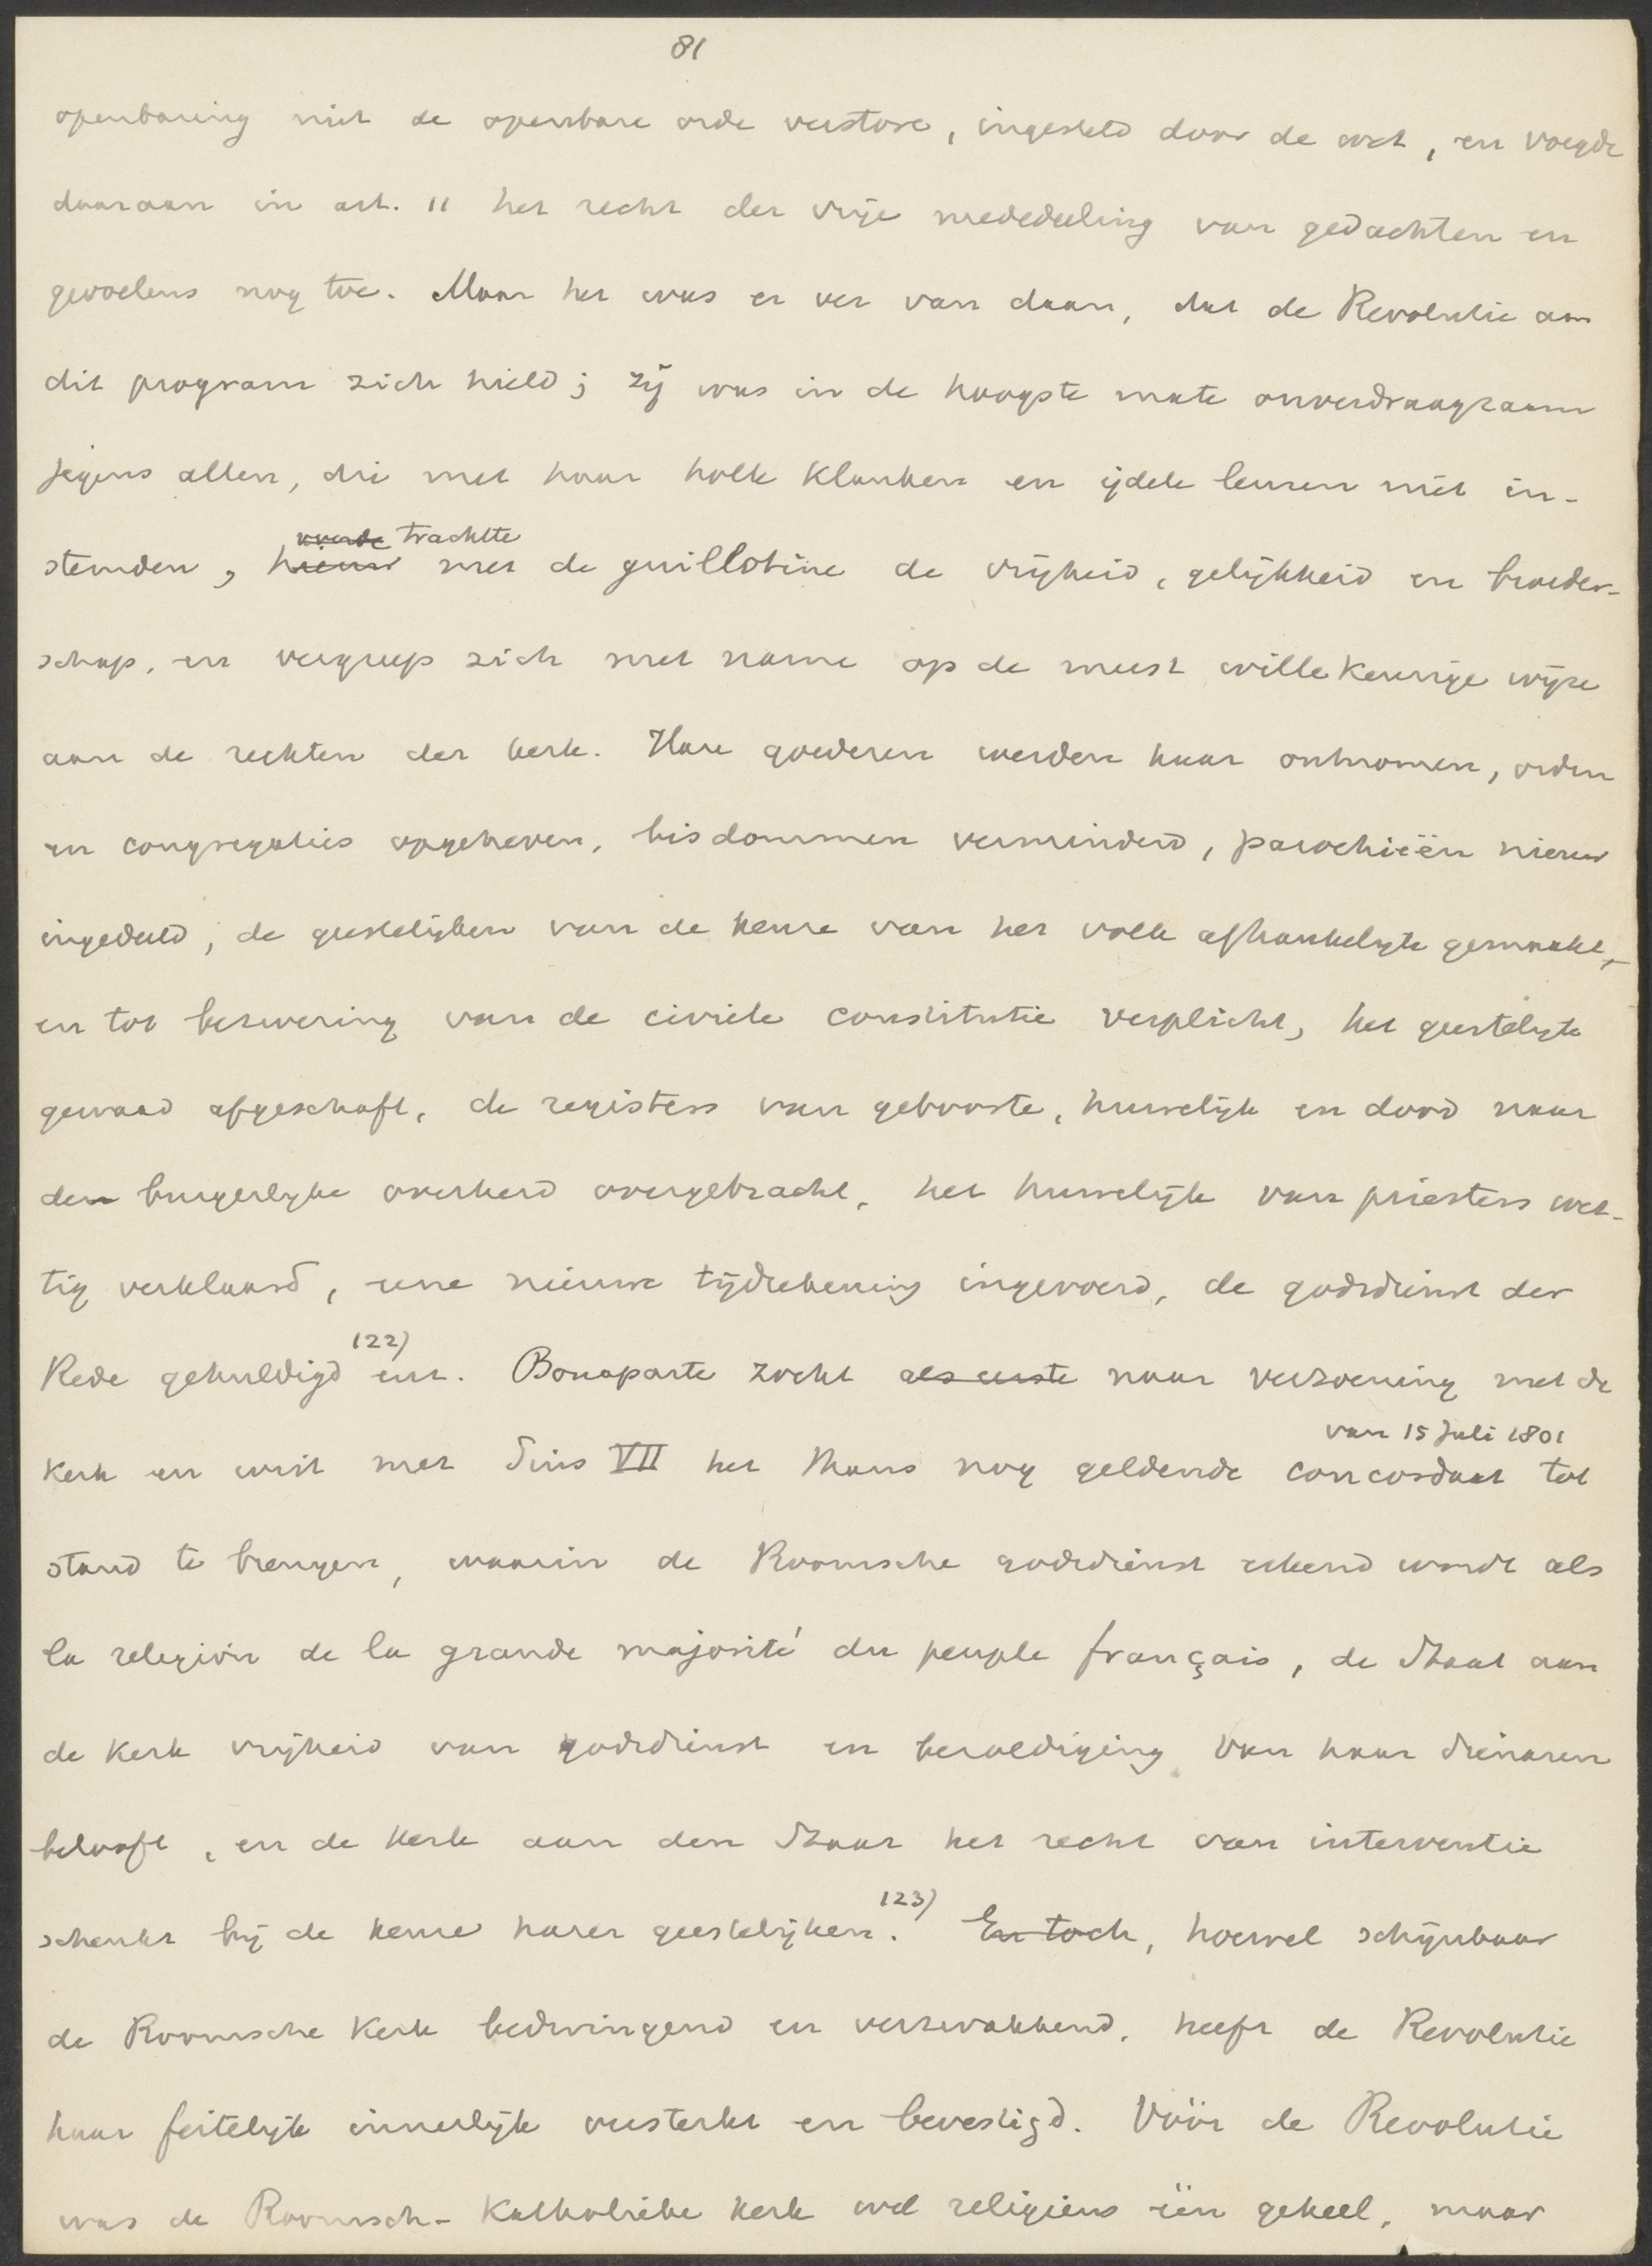 81
openbaring niet de openbare orde verstore, ingesteld door de wet, en voegde
daaraan in art. 11 het recht der vrije mededeeling van gedachten en
gevoelens nog toe. Maar het was er ver van daan, dat de Revolutie aan
dit program zich hield; zij was in de hoogste mate onverdraagzaam
jegens allen, die met haar holle klanken en ijdele leuzen niet in-
trachtte
stemden, met de guillotine de vrijheid, gelijkheid en broeder-
schap, en vergreep zich met name op de meest willekeurige wijze
aan de rechten der kerk. Hare goederen werden haar ontnomen, orden
en congregaties opgeheven, bisdommen verminderd, parochieën nieuw
ingedeeld, de geestelijken van de keuze van het volk afhankelijk gemaakt,
en tot bezwering van de civiele constitutie verplicht, het geestelijk
gewaad afgeschaft, de registers van geboorte, huwelijk en dood naar
den burgerlijke overheid overgebracht, het huwelijk van priesters wet-
tig verklaard, eene nieuwe tijdrekening ingevoerd, de godsdienst der
Rede gehuldigd 122) enz. Bonaparte zocht als eerste naar verzoening met de
van 15 Juli 1801
Kerk en wist met Pius VII het thans nog geldende concordaat tot
stand te brengen, waarin de Roomsche godsdienst erkend wordt als
la religion de la grande majorité du peuple français, de Staat aan
de Kerk vrijheid van godsdienst en bezoldiging van haar dienaren
belooft, en de Kerk aan den Staat het recht van interventie
schenkt bij de keuze harer geestelijken. 123) En toch, hoewel schijnbaar
de Roomsche Kerk bedwingend en verzwakkend, heeft de Revolutie
haar feitelijk innerlijk versterkt en bevestigd. Vóór de Revolutie
was de Roomsch-Katholieke Kerk wel religieus één geheel, maar